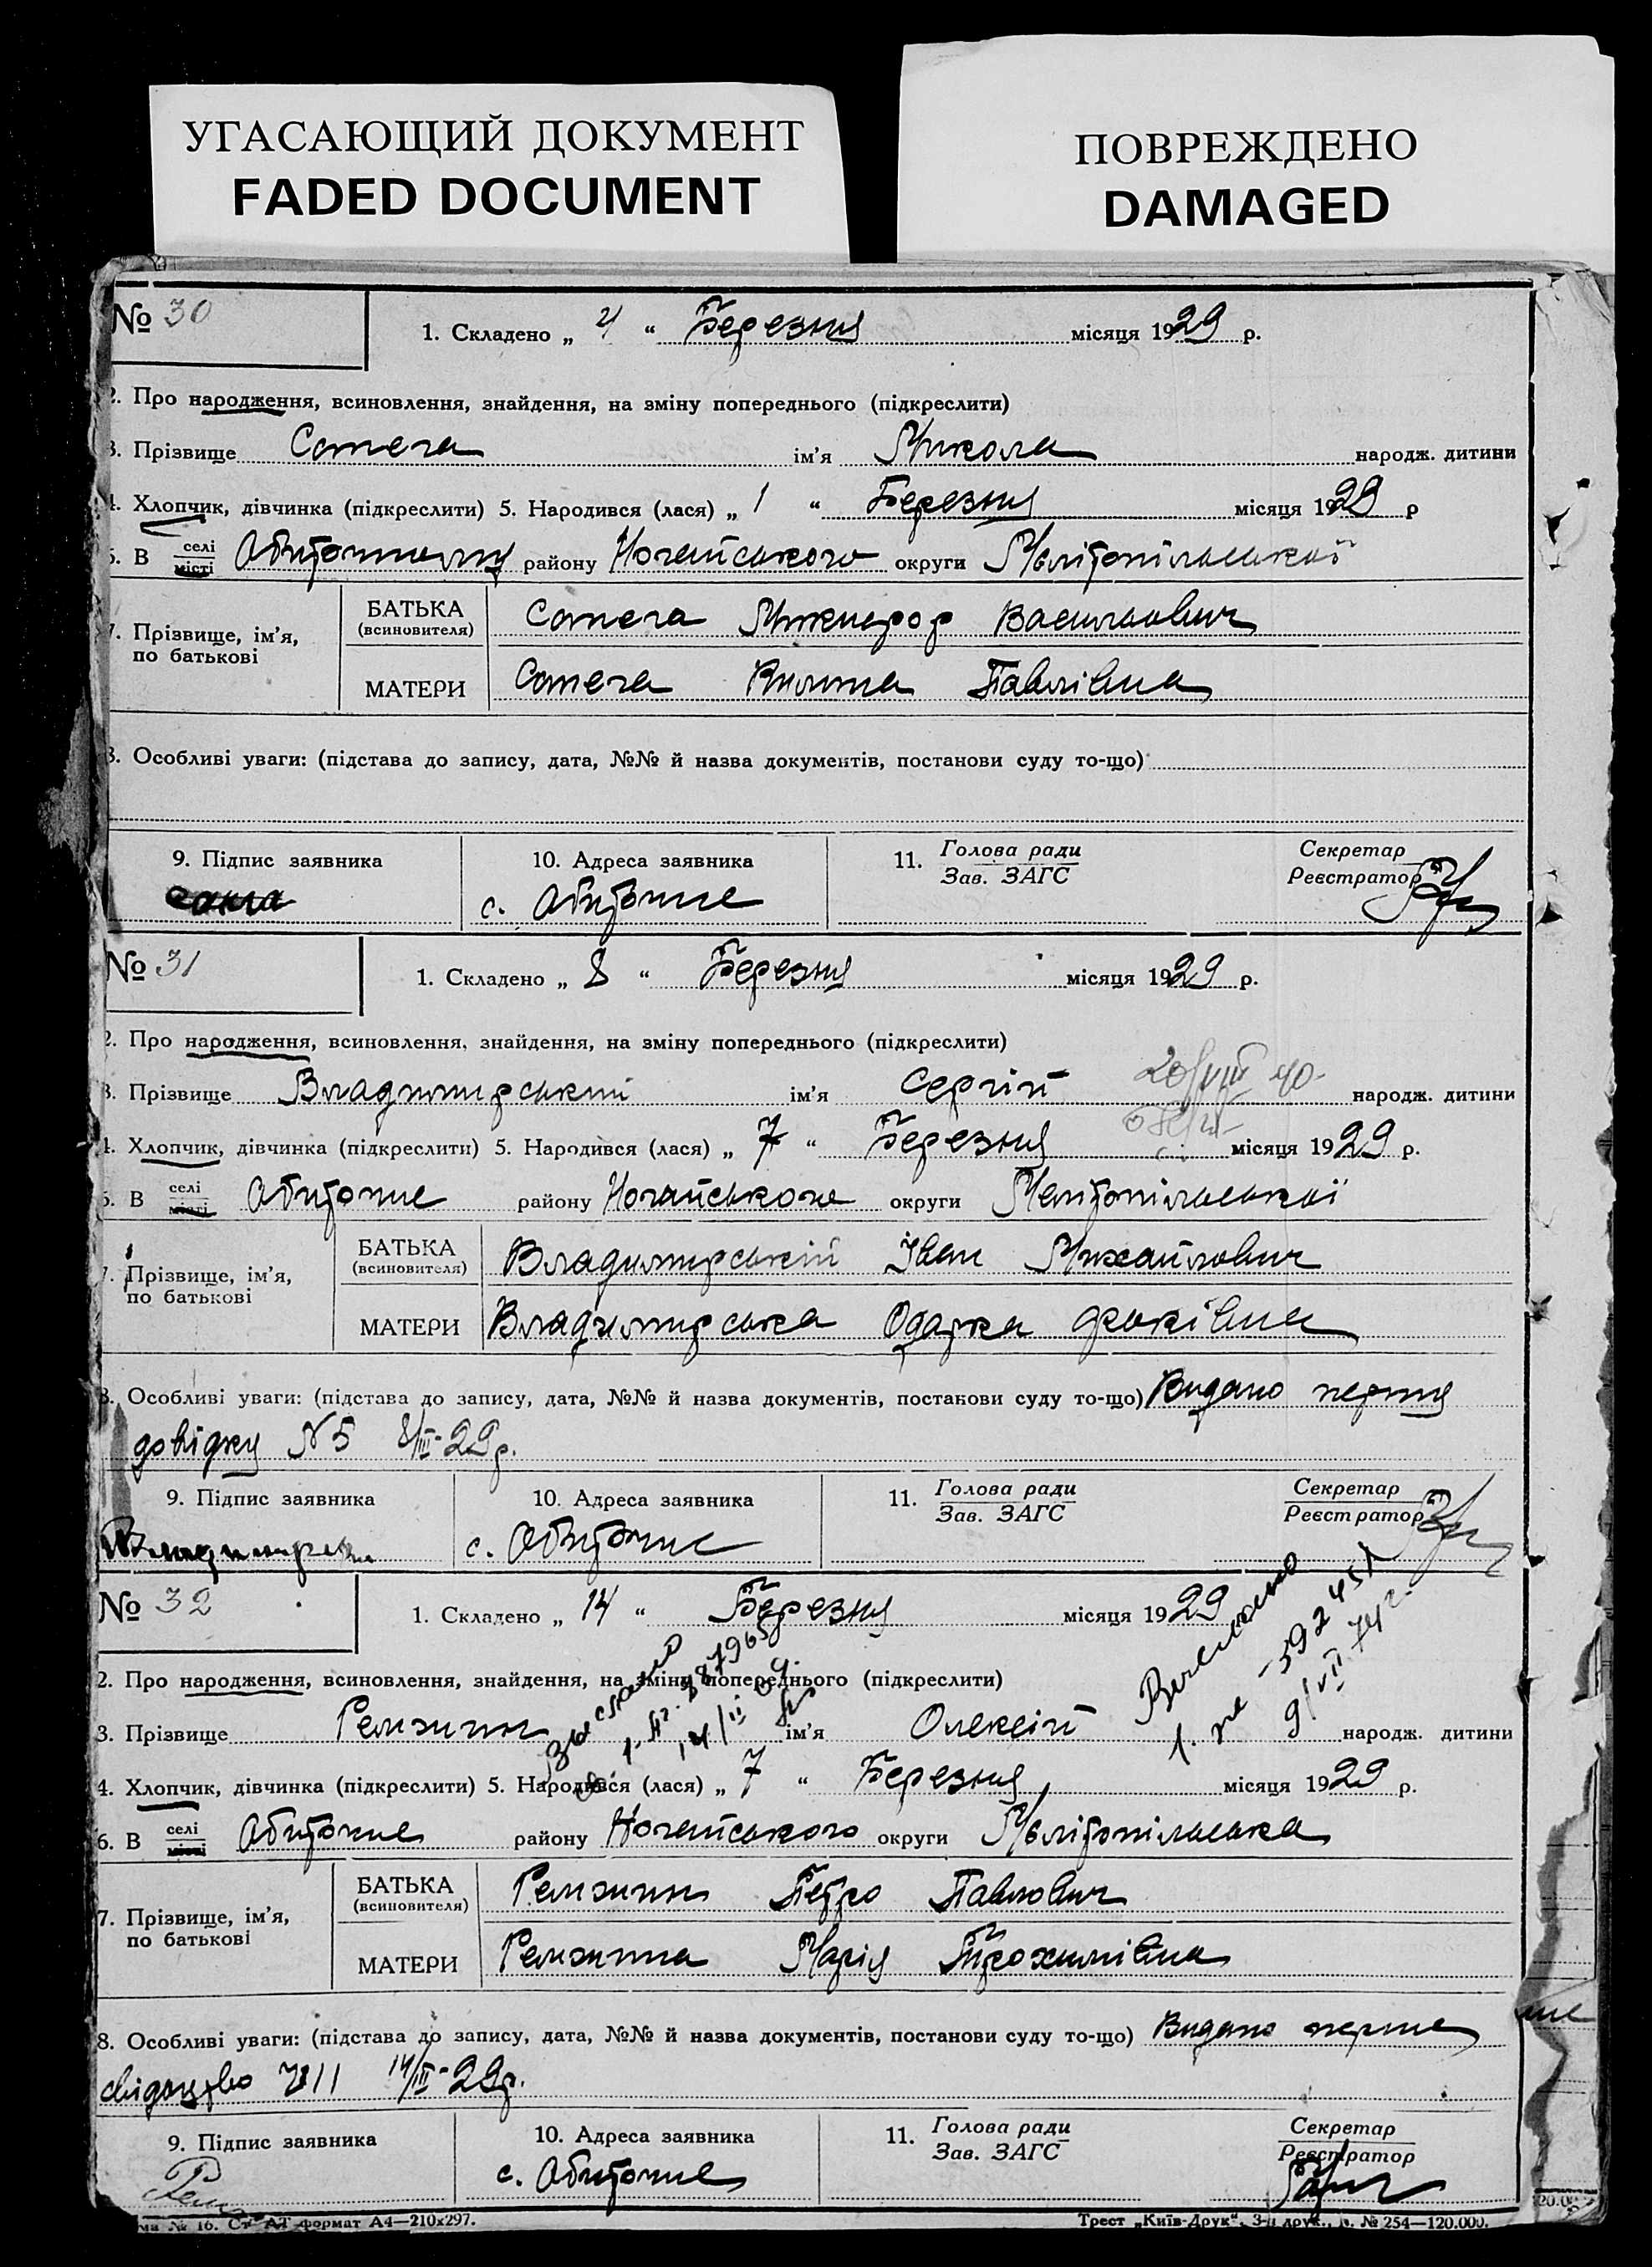 УГАСАЮЩИЙ ДОКУМЕНТ
FADED DOCUMENT
ПОВРЕЖДЕНО
DAMAGED
№ 30
1. Складено „ 4 “ Березня місяця 1929 р.
2. Про народження, всиновлення, знайдення, на зміну попереднього (підкреслити)
3. Прізвище ім'я Микола народж. дитини
4. Хлопчик, дівчинка (підкреслити) 5. Народився (лася) „ 1 “ Березня місяця 1929 р
6. В селі місті району Ногайського округи Мелітопільської
7. Прізвище, ім'я, по батькові
БАТЬКА (всиновителя) Васильович
МАТЕРИ Павлівна
8. Особливі уваги: (підстава до запису, дата, №№ й назва документів, постанови суду то-що)
9. Підпис заявника 10. Адреса заявника 11. Голова ради Зав. ЗАГС Секретар Реєстратор
с. Обиточне
№ 31
1. Складено „ 8 “ Березня місяця 1929 р.
2. Про народження, всиновлення, знайдення, на зміну попереднього (підкреслити)
3. Прізвище Владимирський ім'я Сергій народж. дитини
4. Хлопчик, дівчинка (підкреслити) 5. Народився (лася) „ 7 “ Березня місяця 1929 р.
6. В селі місті Обиточне району округи Мелітопільської
7. Прізвище, ім'я, по батькові
БАТЬКА (всиновителя) Владимирській Іван Михайлович
МАТЕРИ Владимирська Одарка
8. Особливі уваги: (підстава до запису, дата, №№ й назва документів, постанови суду то-що) Видано першу
довідку N 5 8/III-29р.
9. Підпис заявника 10. Адреса заявника 11. Голова ради Зав. ЗАГС Секретар Реєстратор
с. Обиточне
№ 32
1. Складено „ 14 “ Березня місяця 1929
2. Про народження, всиновлення, знайдення, на зміну попереднього (підкреслити)
3. Прізвище Ремжин ім'я Олексій народж. дитини
4. Хлопчик, дівчинка (підкреслити) 5. Народився (лася) „ 7 “ Березня місяця 1929 р.
6. В селі місті Обиточне району Ногайського округи Мелітопільська
7. Прізвище, ім'я, по батькові
БАТЬКА (всиновителя) Ремжин Петро Павлович
МАТЕРИ Ремжина Марія Трохимівна
8. Особливі уваги: (підстава до запису, дата, №№ й назва документів, постанови суду то-що) Видано перше
свідоцтво 14/III-29р.
9. Підпис заявника 10. Адреса заявника 11. Голова ради Зав. ЗАГС Секретар Реєстратор
с. Обиточне
№ 16. формат А4—210х297.
Трест „Київ-Друк“, № 254—120.000.